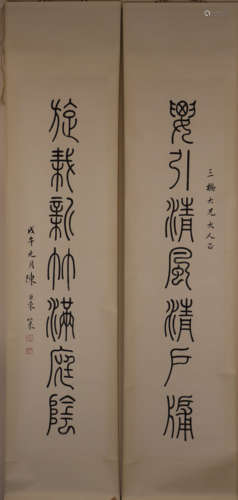 三橋大兄大人正
要引清風清戶牖
旋栽新竹滿庭陰
戊午九月陳